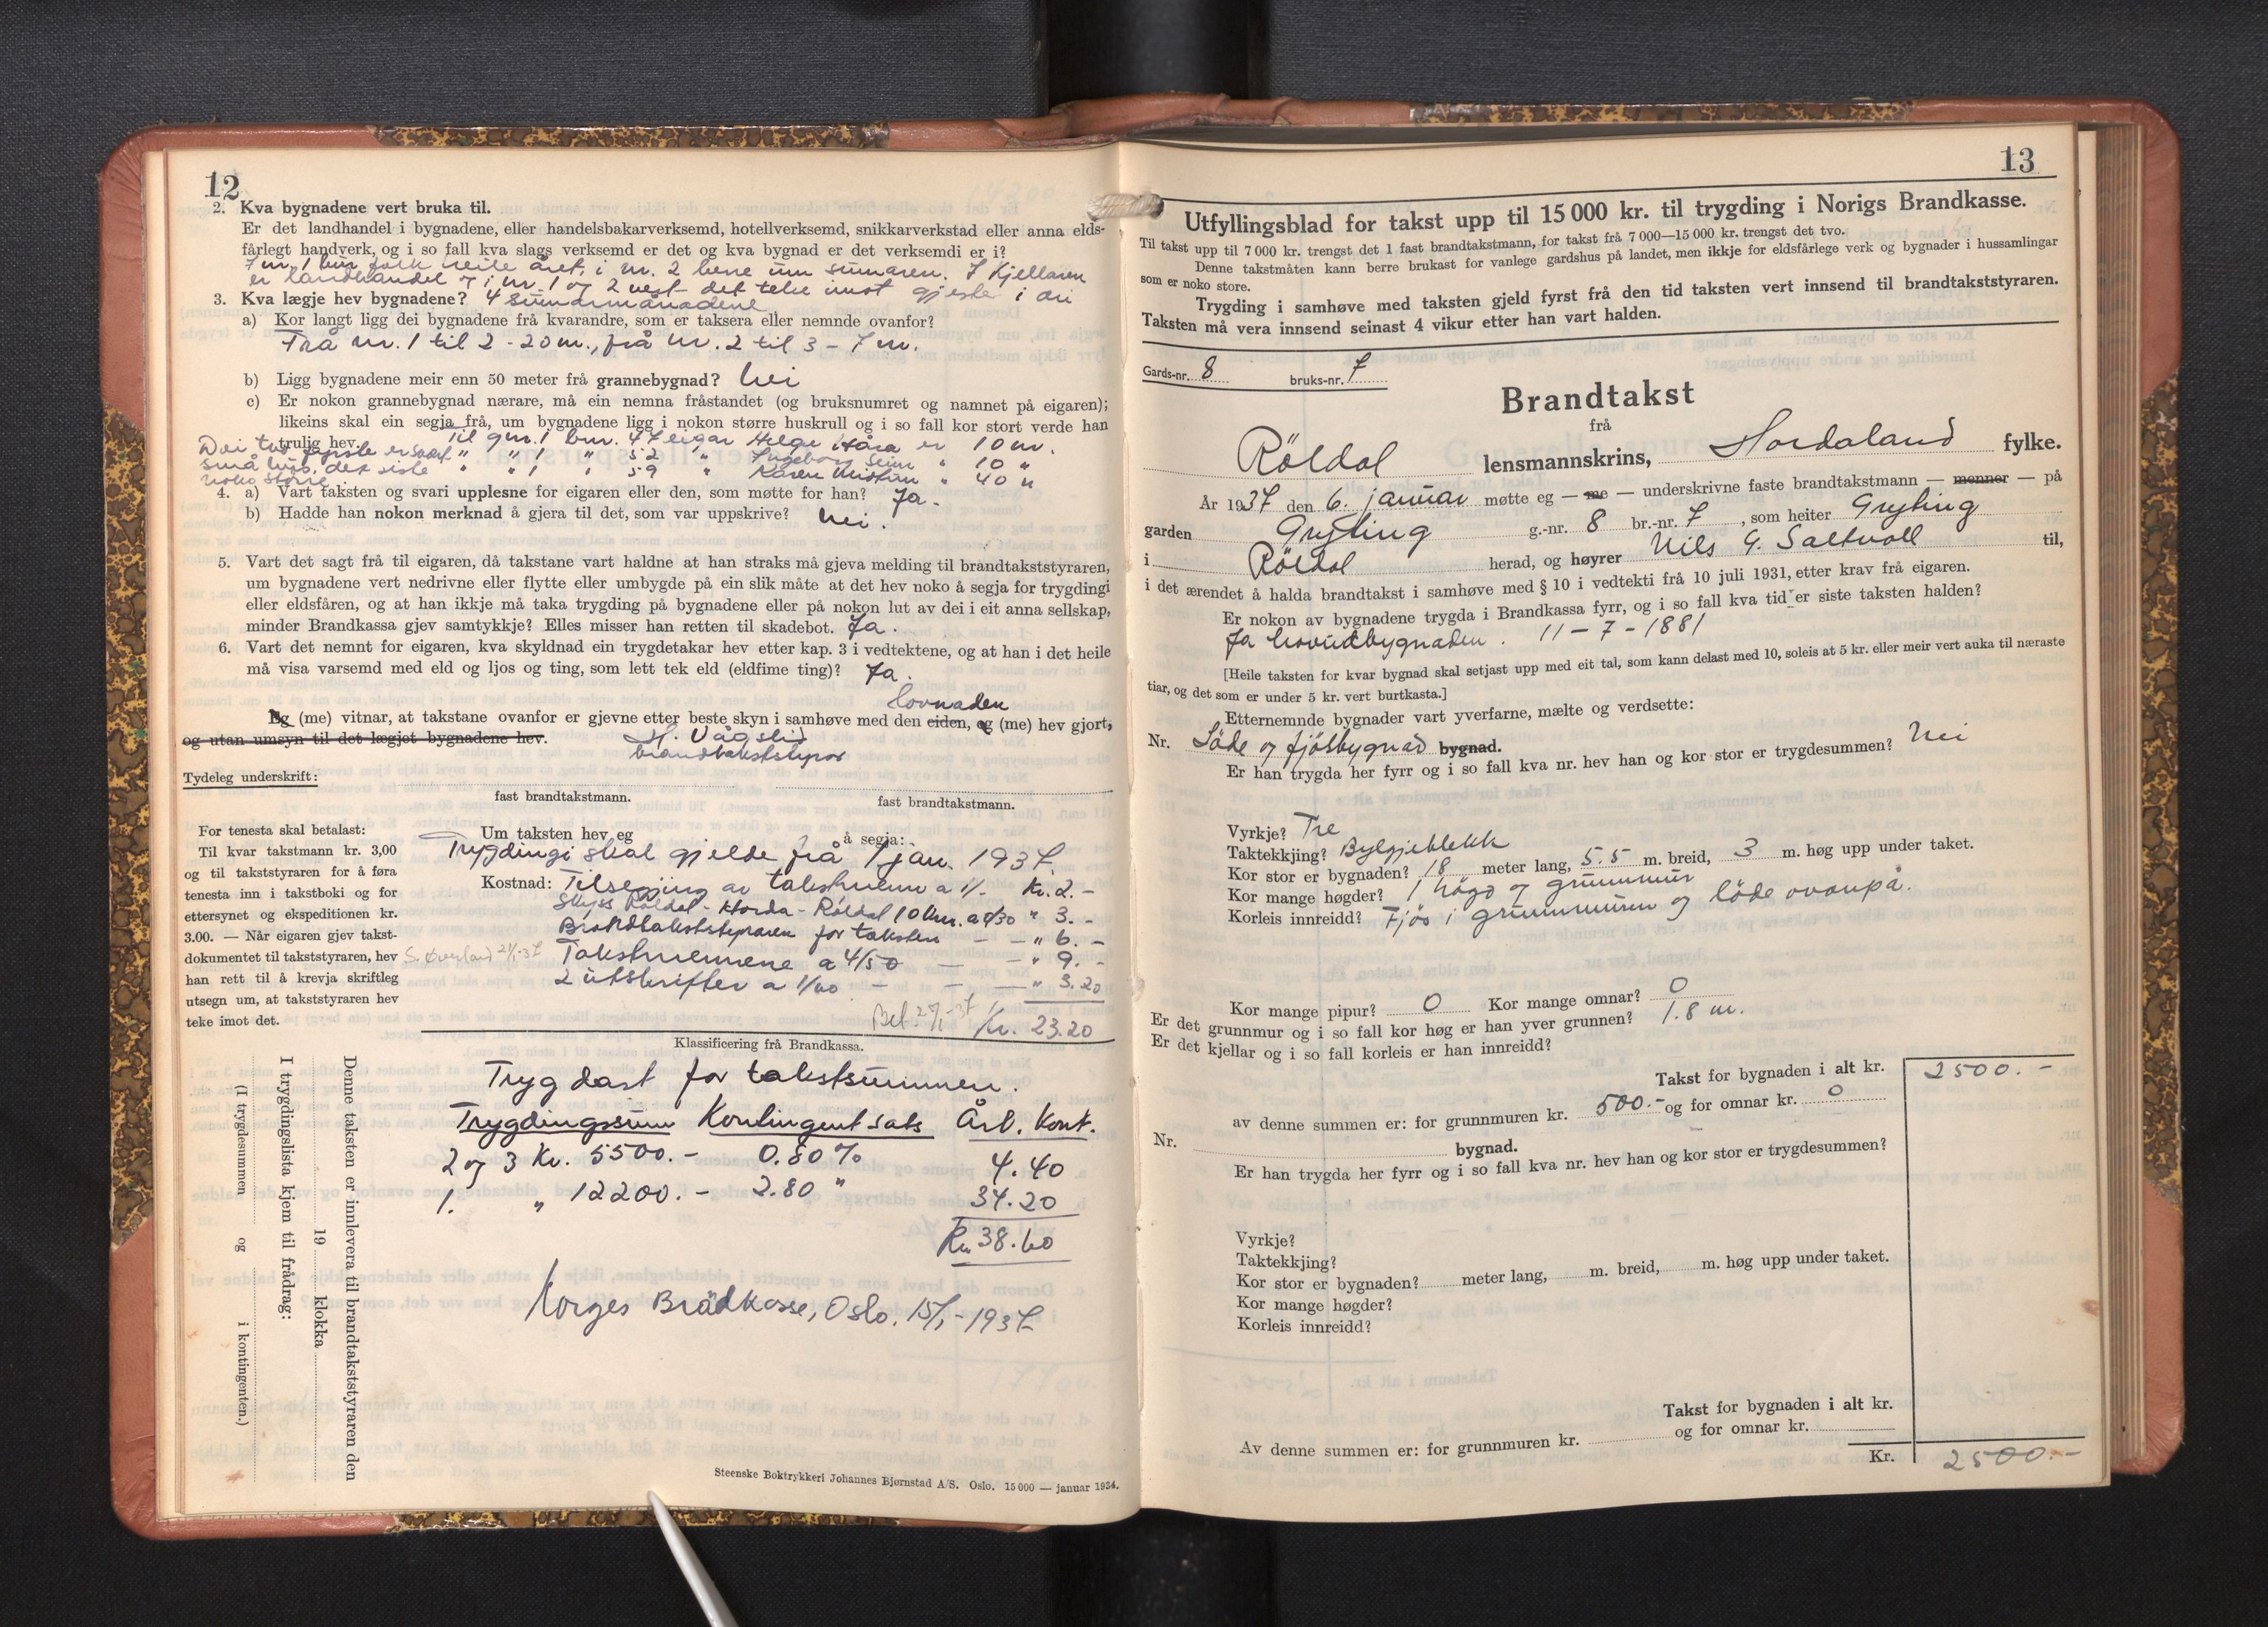 12
2. Kva bygnadene vert bruka til.
Er det landhandel i bygnadene, eller handelsbakarverksemd, hotellverksemd, snikkarverkstad eller anna elds-
fårlegt handverk, og i so fall kva slags verksemd er det og kva bygnad er det verksemdi er i?
I nr. 1 bur folk heile året, i nr. 2 berre um sumaren. I Kjellaren
er landhandel og i nr. 1 og 2 vert det teke imot gjester i dei
4 sumarmånadene
3. Kva lægje hev bygnadene?
a) Kor langt ligg dei bygnadene frå kvarandre, som er taksera eller nemnde ovanfor?
Frå nr. 1 til 2 - 20 m., frå nr. 2 til 3 - 7 m.
b) Ligg bygnadene meir enn 50 meter frå grannebygnad? Nei
c) Er nokon grannebygnad nærare, må ein nemna fråstandet (og bruksnumret og namnet på eigaren);
likeins skal ein segja frå, um bygnadene ligg i nokon større huskrull og i so fall kor stort verde han
trulig hev. Til gnr. 1 bnr. 47 eigar Helge Håra er 10 m.
" " 1 " 52 " Ingeborg Seim " 10 "
" " 1 " 59 " Karen " 40 "
Dei två første er svært
små hus, det siste
noko større
4. a) Vart taksten og svari upplesne for eigaren eller den, som møtte for han? Ja.
b) Hadde han nokon merknad å gjera til det, som var uppskrive? Nei.
5. Vart det sagt frå til eigaren, då takstane vart haldne at han straks må gjeva melding til brandtakststyraren,
um bygnadene vert nedrivne eller flytte eller umbygde på ein slik måte at det hev noko å segja for trygdingi
eller eldsfåren, og at han ikkje må taka trygding på bygnadene eller på nokon lut av dei i eit anna sellskap,
minder Brandkassa gjev samtykkje? Elles misser han retten til skadebot. Ja.
6. Vart det nemnt for eigaren, kva skyldnad ein trygdetakar hev etter kap. 3 i vedtektene, og at han i det heile
må visa varsemd med eld og ljos og ting, som lett tek eld (eldfime ting)? Ja.
lovnaden
Eg (me) vitnar, at takstane ovanfor er gjevne etter beste skyn i samhøve med den eiden, eg (me) hev gjort,
og utan umsyn til det lægjet bygnadene hev.
H. Vågslid
brandtakststyrar
Tydeleg underskrift:
fast brandtakstmann. fast brandtakstmann.
For tenesta skal betalast:
Til kvar takstmann kr. 3,00
og til takststyraren for å føra
tenesta inn i takstboki og for
ettersynet og ekspeditionen kr.
3.00. — Når eigaren gjev takst-
dokumentet til takststyraren, hev
han rett til å krevja skriftleg
utsegn um, at takststyraren hev
teke imot det.
Um taksten hev eg å segja:
Trygdingi skal gjelde frå 1 jan. 1937.
Kostnad: Tilsegjing av takstmenn a 1/- Kr. 2.-
Skyss Röldal - Horda - Röldal 10 km. a 0/30 " 3.-
Brandtakststyraren for taksten - - " 6.-
S. Overland 21/1-37
Takstmennene a 4/50 - - " 9.-
2 utskrifter a 1/60 - - - " 3.20
Bet. 21/1-37 Kr. 23.20
Klassificering frå Brandkassa.
Trygdast for takstsummen.
Trygdingssum Kontingentsats Årl. Kont.
2 og 3 Kr. 5500.- 0.80 % 4.40
1. " 12200.- 2.80 " 34.20
Kr. 38.60
Norges Brandkasse, Oslo, 15/1-1937
Denne taksten er innlevera til brandtakststyraren den
19 klokka
I trygdingslista kjem til frådrag:
(I trygdesummen og i kontingenten.)
Steenske Boktrykkeri Johannes Bjørnstad A/S. Oslo. 15 000 — januar 1934.
13
Utfyllingsblad for takst upp til 15 000 kr. til trygding i Norigs Brandkasse.
Til takst upp til 7 000 kr. trengst det 1 fast brandtakstmann, for takst frå 7 000—15 000 kr. trengst det tvo.
Denne takstmåten kann berre brukast for vanlege gardshus på landet, men ikkje for eldsfårlege verk og bygnader i hussamlingar
som er noko store.
Trygding i samhøve med taksten gjeld fyrst frå den tid taksten vert innsend til brandtakststyraren.
Taksten må vera innsend seinast 4 vikur etter han vart halden.
Gards-nr. 8 bruks-nr. 7
Brandtakst
frå
Röldal lensmannskrins, Hordaland fylke.
År 1937 den 6. januar møtte eg — me — underskrivne faste brandtakstmann — menner — på
garden Gryting g.-nr. 8 br.-nr. 7, som heiter Gryting
i Röldal herad, og høyrer Nils G. Saltvoll til,
i det ærendet å halda brandtakst i samhøve med § 10 i vedtekti frå 10 juli 1931, etter krav frå eigaren.
Er nokon av bygnadene trygda i Brandkassa fyrr, og i so fall kva tid er siste taksten halden?
Ja hovudbygnaden. 11-7-1881
[Heile taksten for kvar bygnad skal setjast upp med eit tal, som kann delast med 10, soleis at 5 kr. eller meir vert auka til næraste
tiar, og det som er under 5 kr. vert burtkasta.]
Etternemnde bygnader vart yverfarne, mælte og verdsette:
Nr. Löde og fjösbygnad bygnad.
Er han trygda her fyrr og i so fall kva nr. hev han og kor stor er trygdesummen? Nei
Vyrkje? Tre
Taktekkjing? Bylgjeblekk
Kor stor er bygnaden? 18 meter lang, 5.5 m. breid, 3 m. høg upp under taket.
Kor mange høgder? 1 högd og grunnmur
Korleis innreidd? Fjös i grunnmuren og löde ovanpå.
Kor mange pipur? 0 Kor mange omnar? 0
Er det grunnmur og i so fall kor høg er han yver grunnen? 1.8 m.
Er det kjellar og i so fall korleis er han innreidd?
Takst for bygnaden i alt kr. 2500.-
av denne summen er: for grunnmuren kr. 500.- og for omnar kr. 0
Nr. bygnad.
Er han trygda her fyrr og i so fall kva nr. hev han og kor stor er trygdesummen?
Vyrkje?
Taktekkjing?
Kor stor er bygnaden? meter lang, m. breid, m. høg upp under taket.
Kor mange høgder?
Korleis innreidd?
Takst for bygnaden i alt kr.
Av denne summen er: for grunnmuren kr. og for omnar kr.
Kr. 2500.-